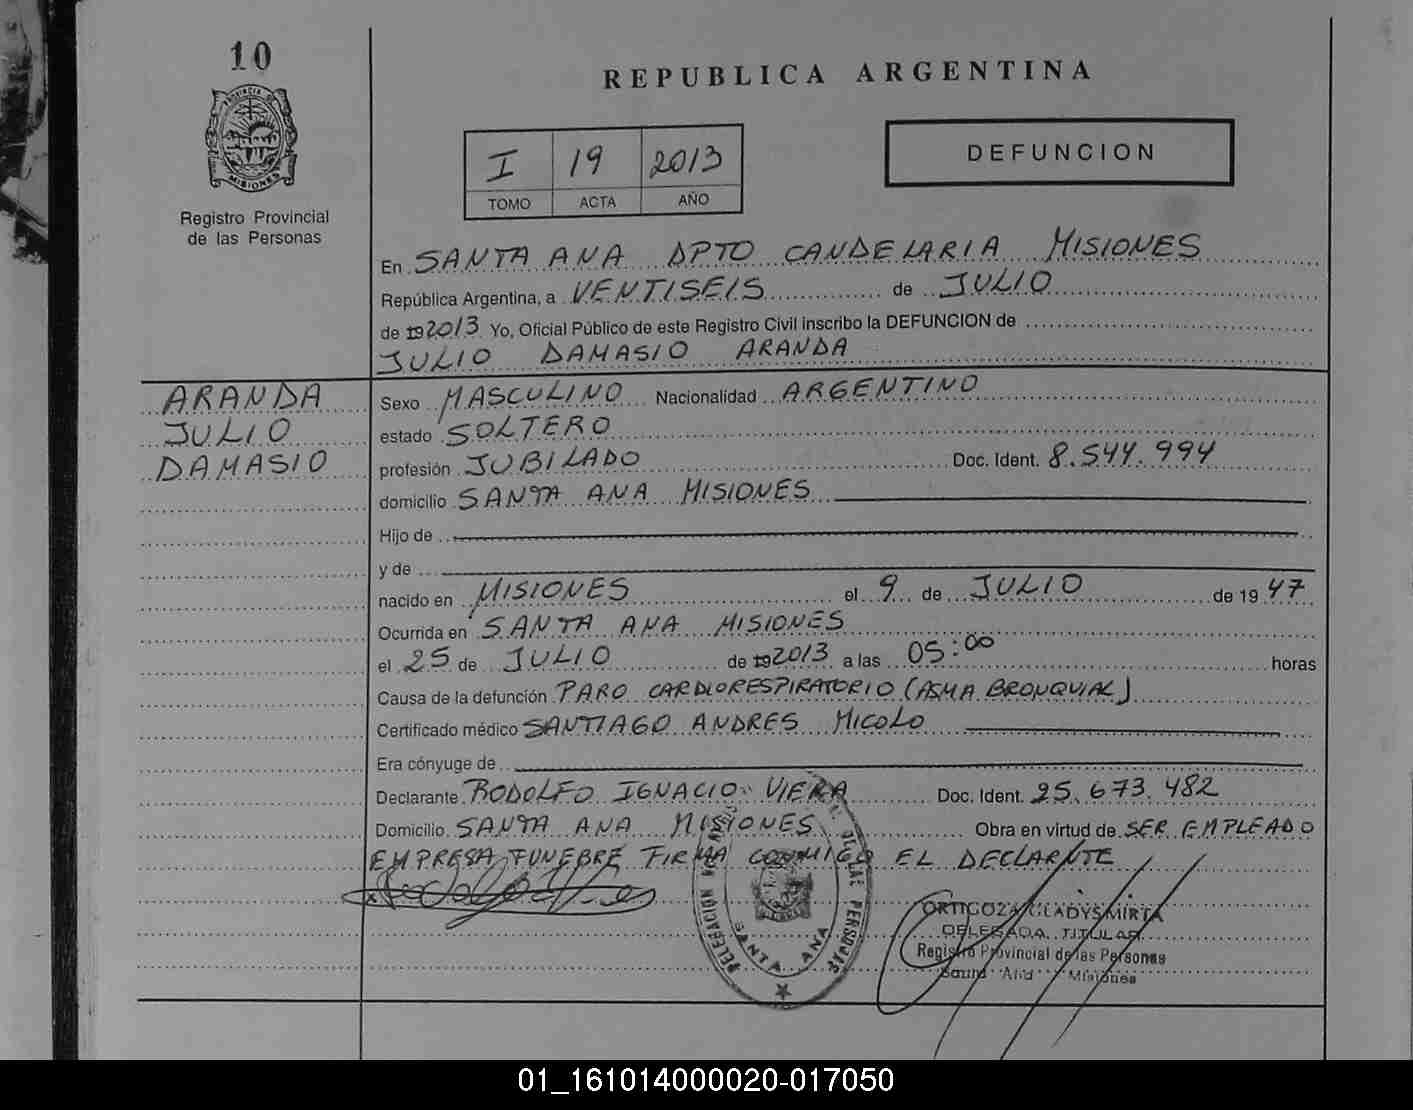 10
PROVINCIA DE
MISIONES
Registro Provincial
de las Personas
REPUBLICA ARGENTINA
I 19 2013
TOMO ACTA AÑO
DEFUNCION
En SANTA ANA DPTO CANDELARIA MISIONES
República Argentina, a VENTISEIS de JULIO
de 192013 Yo, Oficial Público de este Registro Civil inscribo la DEFUNCION de
JULIO DAMASIO ARANDA
ARANDA
JULIO
DAMASIO
Sexo MASCULINO Nacionalidad ARGENTINO
estado SOLTERO
profesión JUBILADO Doc. Ident. 8.544.994
domicilio SANTA ANA MISIONES
Hijo de
y de
nacido en MISIONES el 9 de JULIO de 1947
Ocurrida en SANTA ANA MISIONES
el 25 de JULIO de 192013 a las 05:00 horas
Causa de la defunción PARO CARDIORESPIRATORIO (ASMA BRONQUIAL)
Certificado médico SANTIAGO ANDRES MICOLO
Era cónyuge de
Declarante RODOLFO IGNACIO VIERA Doc. Ident. 25.673.482
Domicilio SANTA ANA MISIONES Obra en virtud de SER EMPLEADO
EMPRESA FUNEBRE FIRMA CONMIGO EL DECLARNTE
DELEGACION DE LAS PERSONAS
SANTA ANA
ORTIGOZA GLADYS MIRTA
DELEGADA TITULAR
Registro Provincial de las Personas
Santa Ana Misiones
01_161014000020-017050